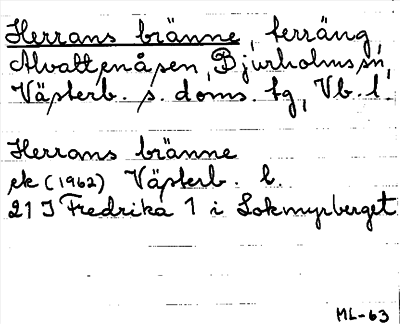 Herrans bränne, terräng,
Alvattenåsen, Bjurholms sn,
Västerb. s. doms. tg, Vb. l.
Herrans bränne
ek (1962) Västerb. l.
21 I Fredrika 1 i Lokmyrberget
ML-63